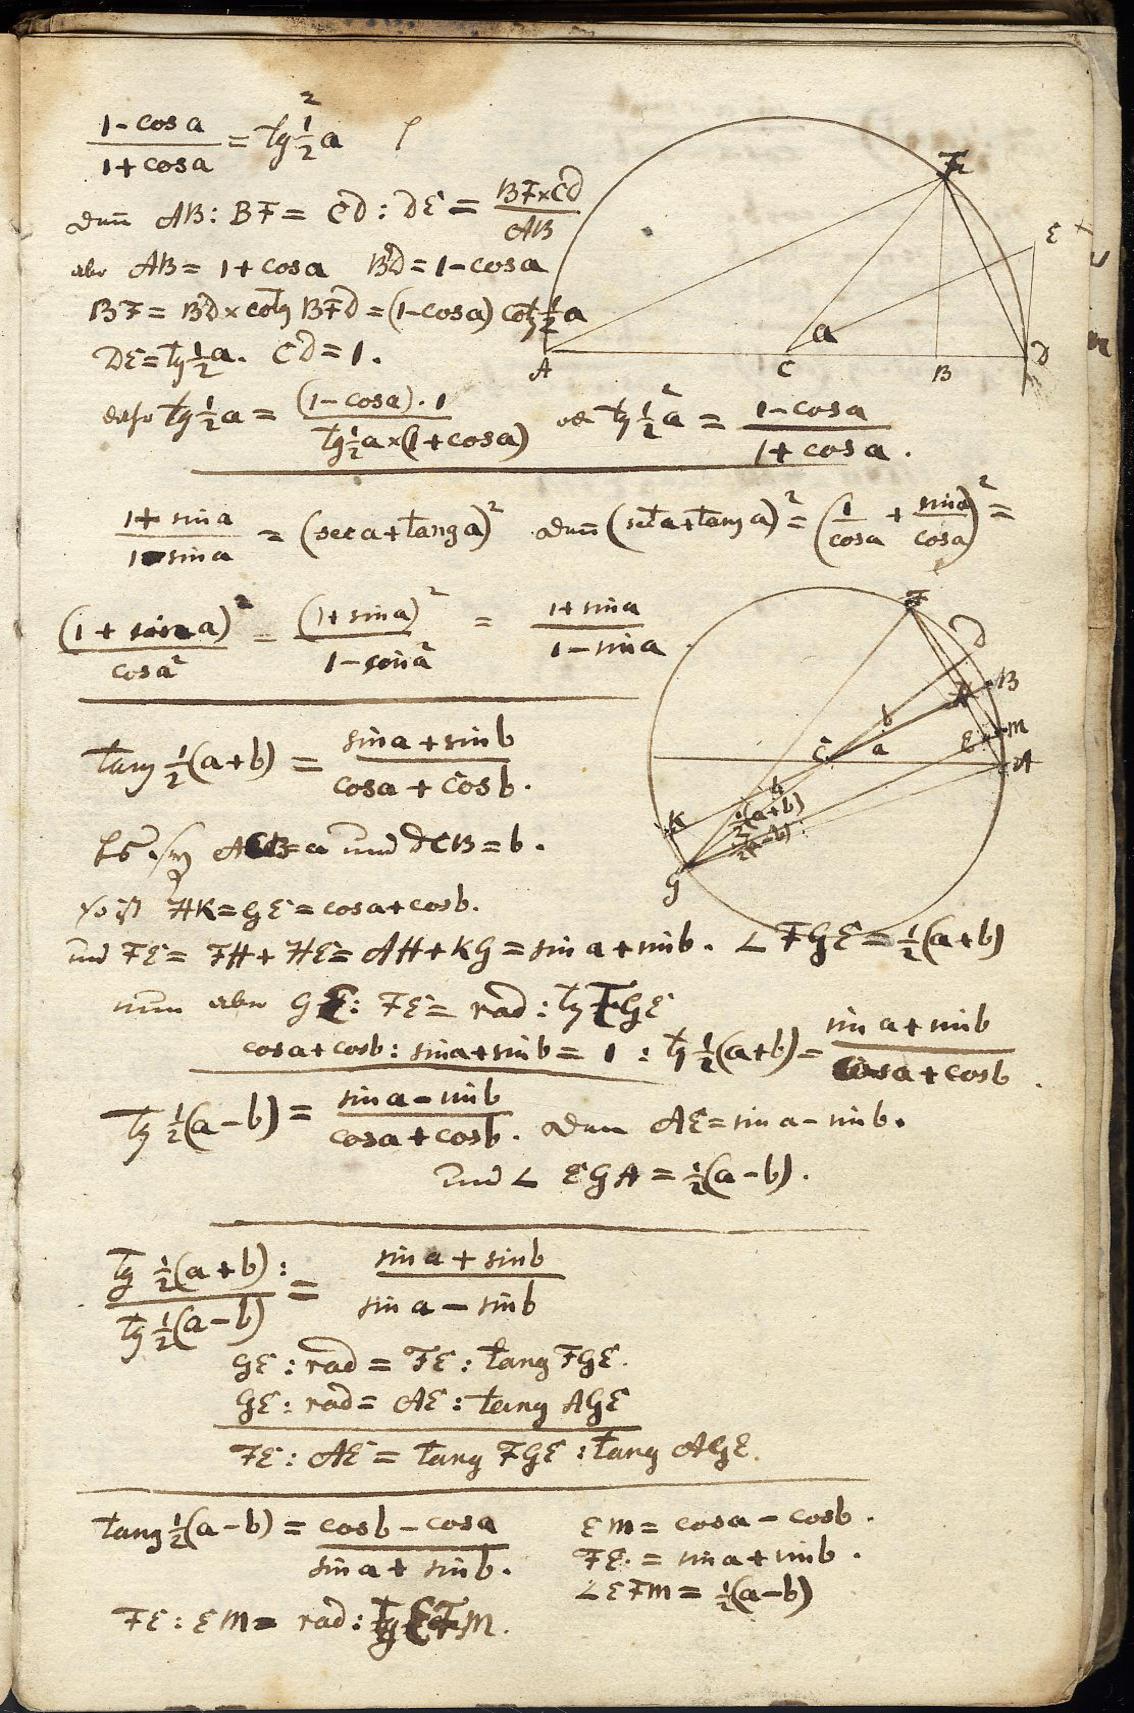 (1-cos a)/(1+cos a) = tg ½a²
dann AB : BF = CD : DE = (BF×CD)/AB
aber AB = 1+cos a BD = 1-cos a
BF = BD × cotg BFD = (1-cos a) cotg ½a
DE = tg ½a. CD = 1.
also tg ½a = ((1-cos a).1)/(tg ½a×(1+cos a)) od tg ½a² = (1-cos a)/(1+cos a).
F
E
a
A C B D
(1+sin a)/(1-sin a) = (sec a + tang a)² dann (sec a + tang a)² = (1/cos a + sin a/cos a)² =
(1+sin a)²/cos a² = (1+sin a)²/(1-sin a²) = (1+sin a)/(1-sin a).
F
D
H B
b
E M
C a A
b
K ½(a+b)
½(a-b)
G
tang ½(a+b) = (sin a + sin b)/(cos a + cos b).
ACB = a und DCB = b.
so ist HK = GE = cos a + cos b.
und FE = FH + HE = AH + KG = sin a + sin b. ∠ FGE = ½(a+b)
nun aber GE : FE = rad : tg FGE
cos a + cos b : sin a + sin b = 1 : tg ½(a+b) = (sin a + sin b)/(cos a + cos b).
tg ½(a-b) = (sin a - sin b)/(cos a + cos b). dann AE = sin a - sin b.
und ∠ EGA = ½(a-b).
tg ½(a+b) : / tg ½(a-b) = (sin a + sin b)/(sin a - sin b)
GE : rad = FE : tang FGE.
GE : rad = AE : tang AGE
FE : AE = tang FGE : tang AGE.
tang ½(a-b) = (cos b - cos a)/(sin a + sin b).
EM = cos a - cos b.
FE. = sin a + sin b.
∠ EFM = ½(a-b)
FE : EM = rad : tg EFM.